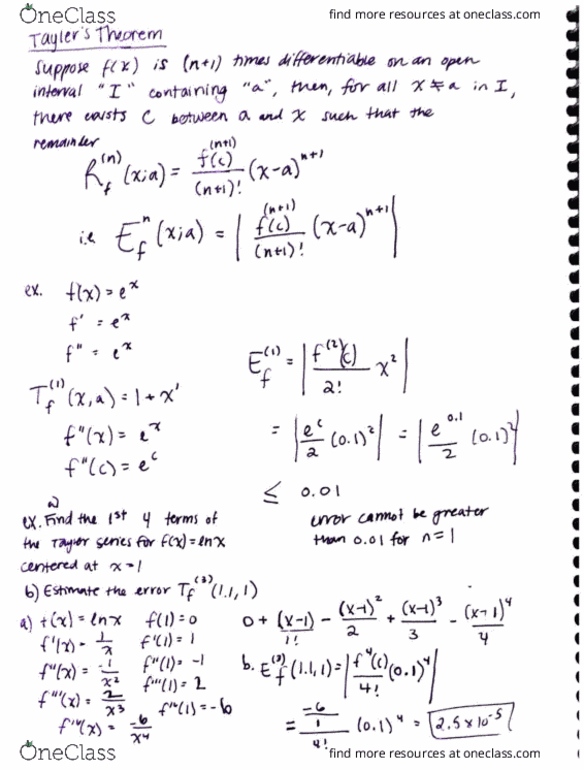 OneClass
find more resources at oneclass.com
Tayler's Theorem
Suppose f(x) is (n+1) times differentiable on an open
interval "I" containing "a", then, for all x ≠ a in I,
there exists C between a and x such that the
remainder
R_f^(n) (x;a) = f^(n+1)(c)/(n+1)! (x-a)^n+1
i.e E_f^n (x;a) = | f^(n+1)(c)/(n+1)! (x-a)^n+1 |
ex. f(x) = e^x
f' = e^x
f'' = e^x
T_f^(1) (x,a) = 1 + x'
f''(x) = e^x
f''(c) = e^c
E_f^(1) = | f^(2)(c)/2! x^2 |
= | e^c/2 (0.1)^2 | = | e^0.1/2 (0.1)^2 |
≤ 0.01
error cannot be greater
than 0.01 for n=1
a)
ex. Find the 1st 4 terms of
the Tayler series for f(x)=lnx
centered at x=1
b) Estimate the error T_f^(3) (1.1,1)
a) f(x) = lnx f(1)=0
f'(x) = 1/x f'(1)=1
f''(x) = -1/x^2 f''(1)= -1
f'''(x) = 2/x^3 f'''(1)= 2
f''''(x) = -6/x^4 f''''(1)= -6
0 + (x-1)/1! - (x-1)^2/2 + (x-1)^3/3 - (x-1)^4/4
b. E_f^(3) (1.1,1) = | f^4(c)/4! (0.1)^4 |
= -6/1/4! (0.1)^4 = 2.5 x 10^-5
OneClass
find more resources at oneclass.com